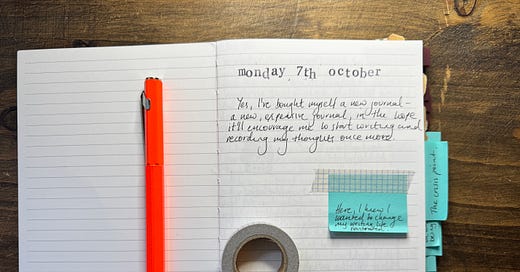 monday 7th october
Yes, I've bought myself a new journal —
a new, expensive journal, in the hope
it'll encourage me to start writing and
recording my thoughts once more.
Here, I knew I
wanted to change
my writing life
The crisis point
being